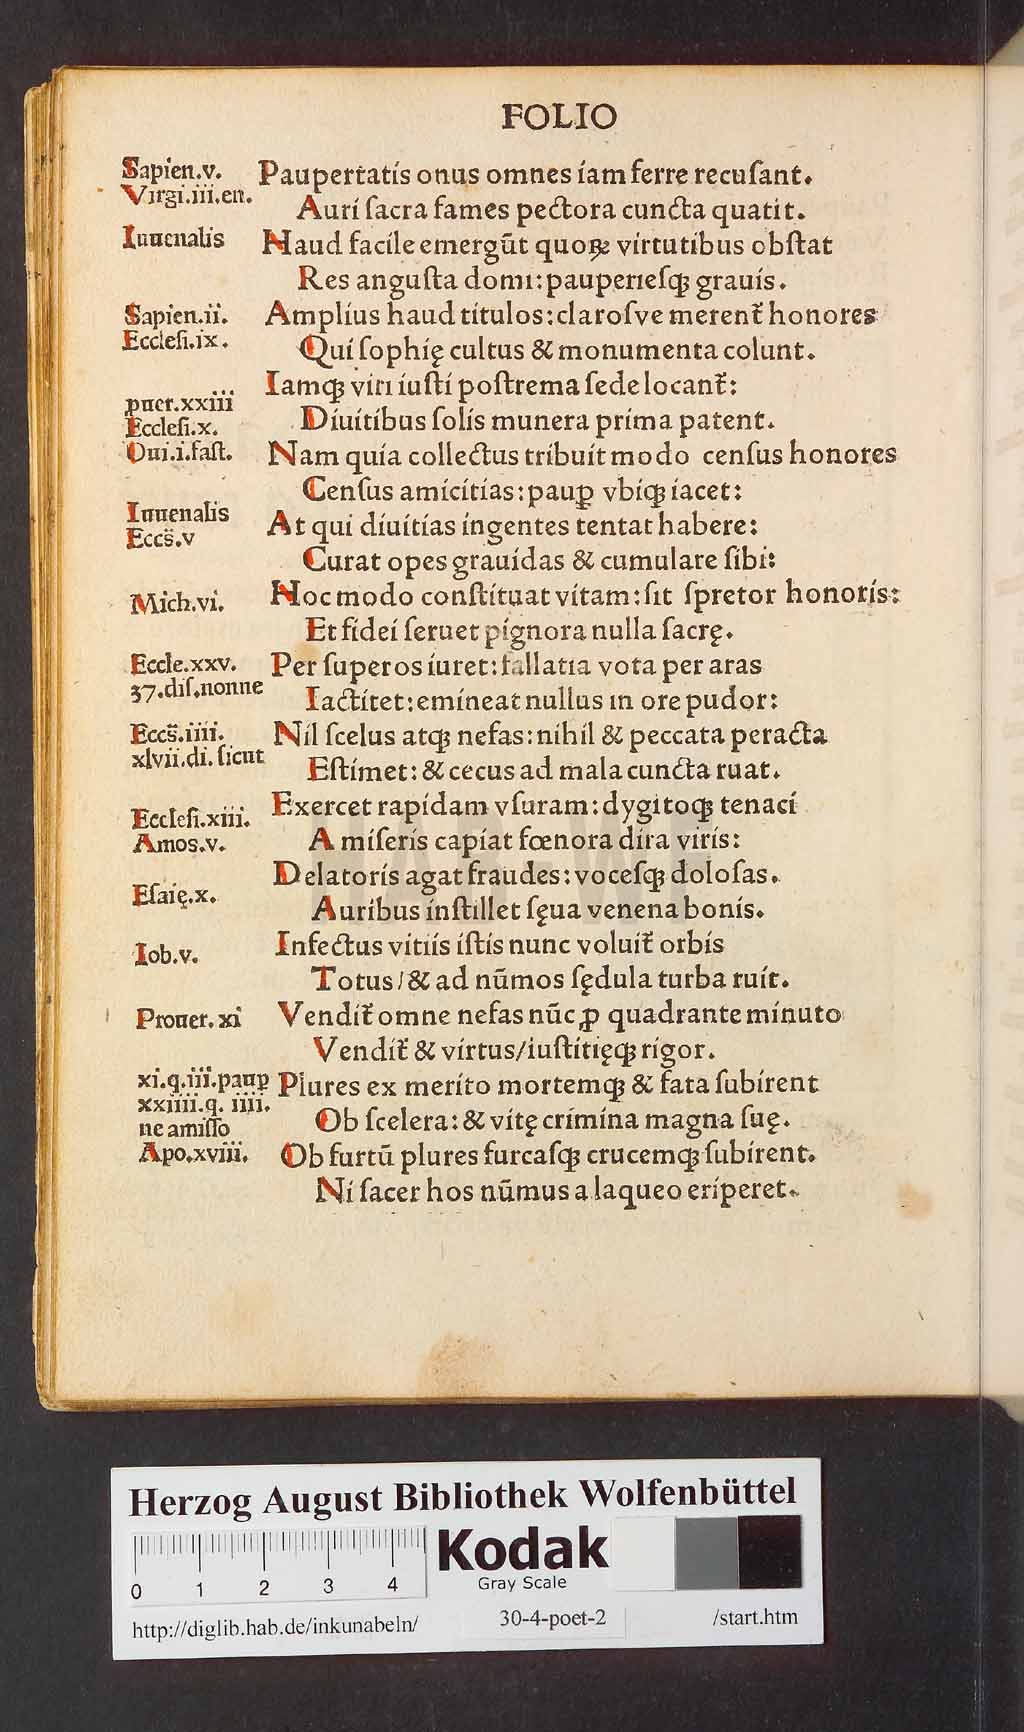 FOLIO
Sapien.v.
Virgi.iii.en.
Iuuenalis
Sapien.ii.
Ecclesi.ix.
puer.xxiii
Ecclesi.x.
Oui.i.fast.
Iuuenalis
Eccs̄.v
Mich.vi.
Eccle.xxv.
37.dis.nonne
Eccs̄.iiii.
xlvii.di.sicut
Ecclesi.xiii.
Amos.v.
Esaię.x.
Iob.v.
Prouer.xi
xi.q.iii.paup̱
xxiiii.q. iiii.
ne amisso
Apo.xviii.
Paupertatis onus omnes iam ferre recuſant.
Auri ſacra fames pectora cuncta quatit.
Haud facile emergūt quoꝝ virtutibus obſtat
Res anguſta domi:paupérieſqꝫ grauis.
Amplius haud titulos:claroſve merent᷑ honores
Qui ſophię cultus & monumenta colunt.
Iamqꝫ viri iuſti poſtrema ſede locant᷑:
Diuitibus ſolis munera prima patent.
Nam quia collectus tribuit modo cenſus honores
Cenſus amicitias:paup̱ vbiqꝫ iacet:
At qui diuitias ingentes tentat habere:
Curat opes grauidas & cumulare ſibi:
Hoc modo conſtituat vitam:ſit ſpretor honoris:
Et fidei ſeruet pignora nulla ſacrę.
Per ſuperos iuret:fallatia vota per aras
Iactitet:emineat nullus in ore pudor:
Nil ſcelus atqꝫ nefas:nihil & peccata peracta
Eſtimet:& cecus ad mala cuncta ruat.
Exercet rapidam vſuram:dygitoqꝫ tenaci
A miſeris capiat fœnora dira viris:
Delatoris agat fraudes:voceſqꝫ doloſas.
Auribus inſtillet ſęua venena bonis.
Infectus vitiis iſtis nunc voluit᷑ orbis
Totus/& ad nūmos ſędula turba ruit.
Vendit᷑ omne nefas nūc ꝓ quadrante minuto
Vendit᷑ & virtus/iuſtitięqꝫ rigor.
Plures ex merito mortemqꝫ & fata ſubirent
Ob ſcelera:& vitę crimina magna ſuę.
Ob furtū plures furcaſqꝫ crucemqꝫ ſubirent.
Ni ſacer hos nūmus a laqueo eriperet.
HAB-WF
Herzog August Bibliothek Wolfenbüttel
0 1 2 3 4
Kodak
Gray Scale
http://diglib.hab.de/inkunabeln/ 30-4-poet-2 /start.htm